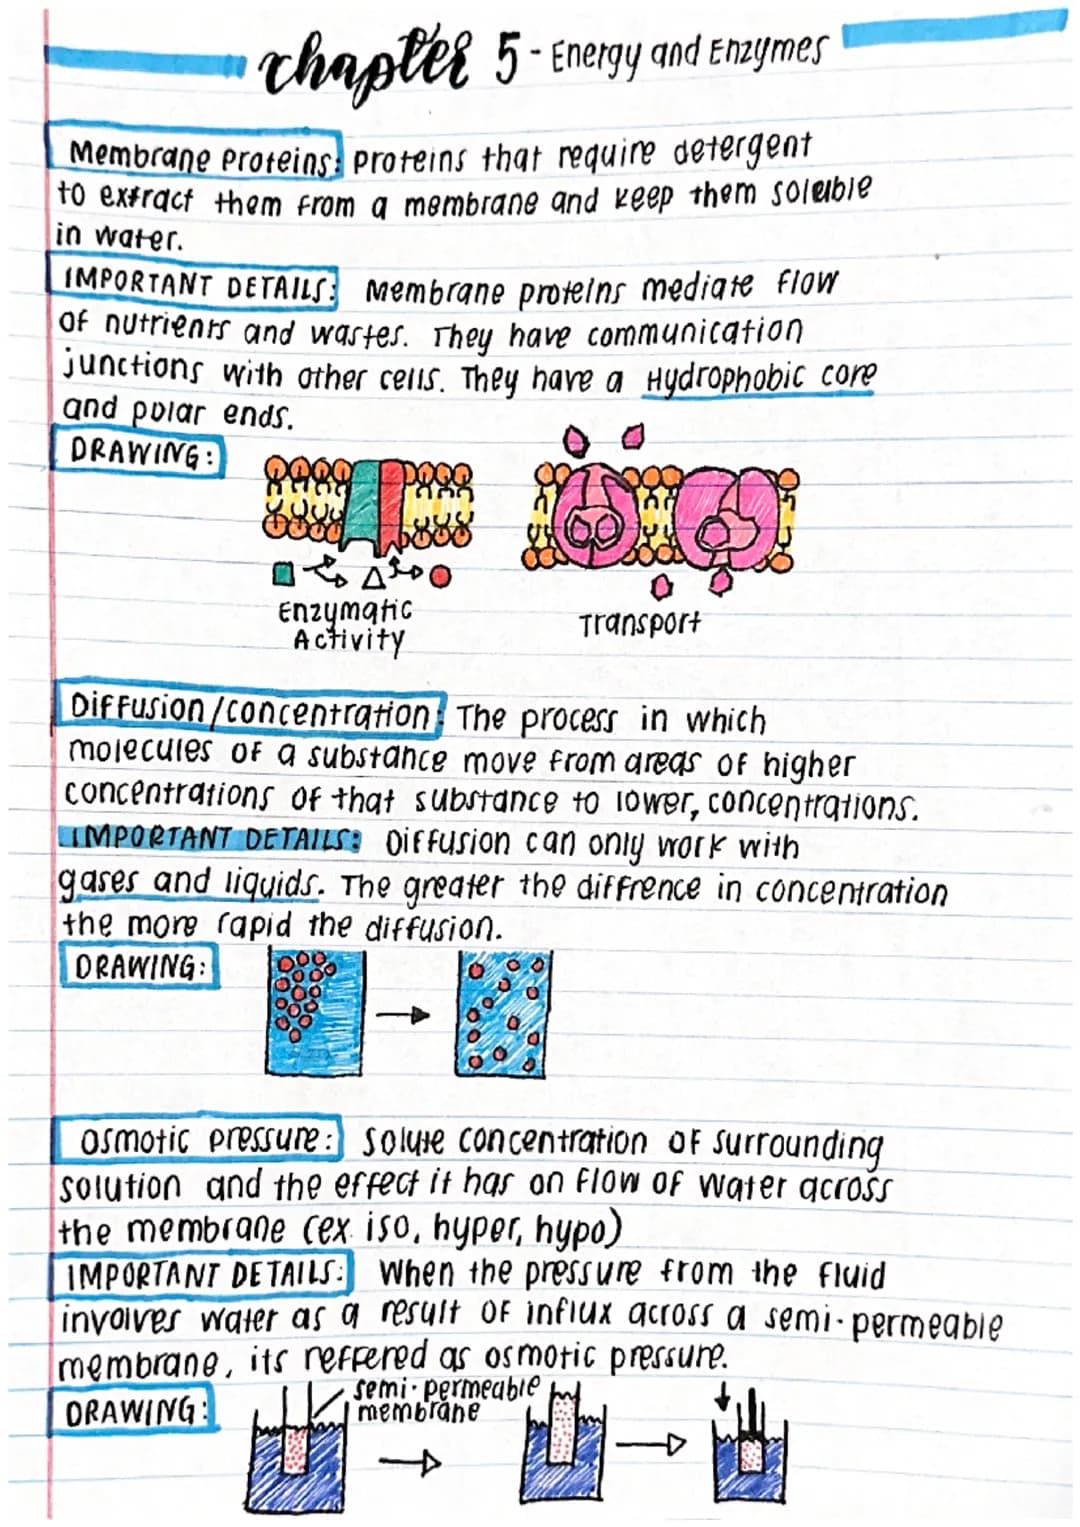 chapter 5 - Energy and Enzymes
Membrane Proteins: Proteins that require detergent
to extract them from a membrane and keep them soluble
in water.
IMPORTANT DETAILS: Membrane proteins mediate flow
of nutrients and wastes. They have communication
junctions with other cells. They have a Hydrophobic core
and polar ends.
DRAWING:
Enzymatic
Activity
Transport
Diffusion/concentration: The process in which
molecules of a substance move from areas of higher
concentrations of that substance to lower, concentrations.
IMPORTANT DETAILS: Diffusion can only work with
gases and liquids. The greater the diffrence in concentration
the more rapid the diffusion.
DRAWING:
Osmotic pressure: Solute concentration of surrounding
solution and the effect it has on flow of water across
the membrane (ex. iso, hyper, hypo)
IMPORTANT DETAILS: When the pressure from the fluid
involves water as a result of influx across a semi-permeable
membrane, its reffered as osmotic pressure.
DRAWING:
semi-permeable
membrane